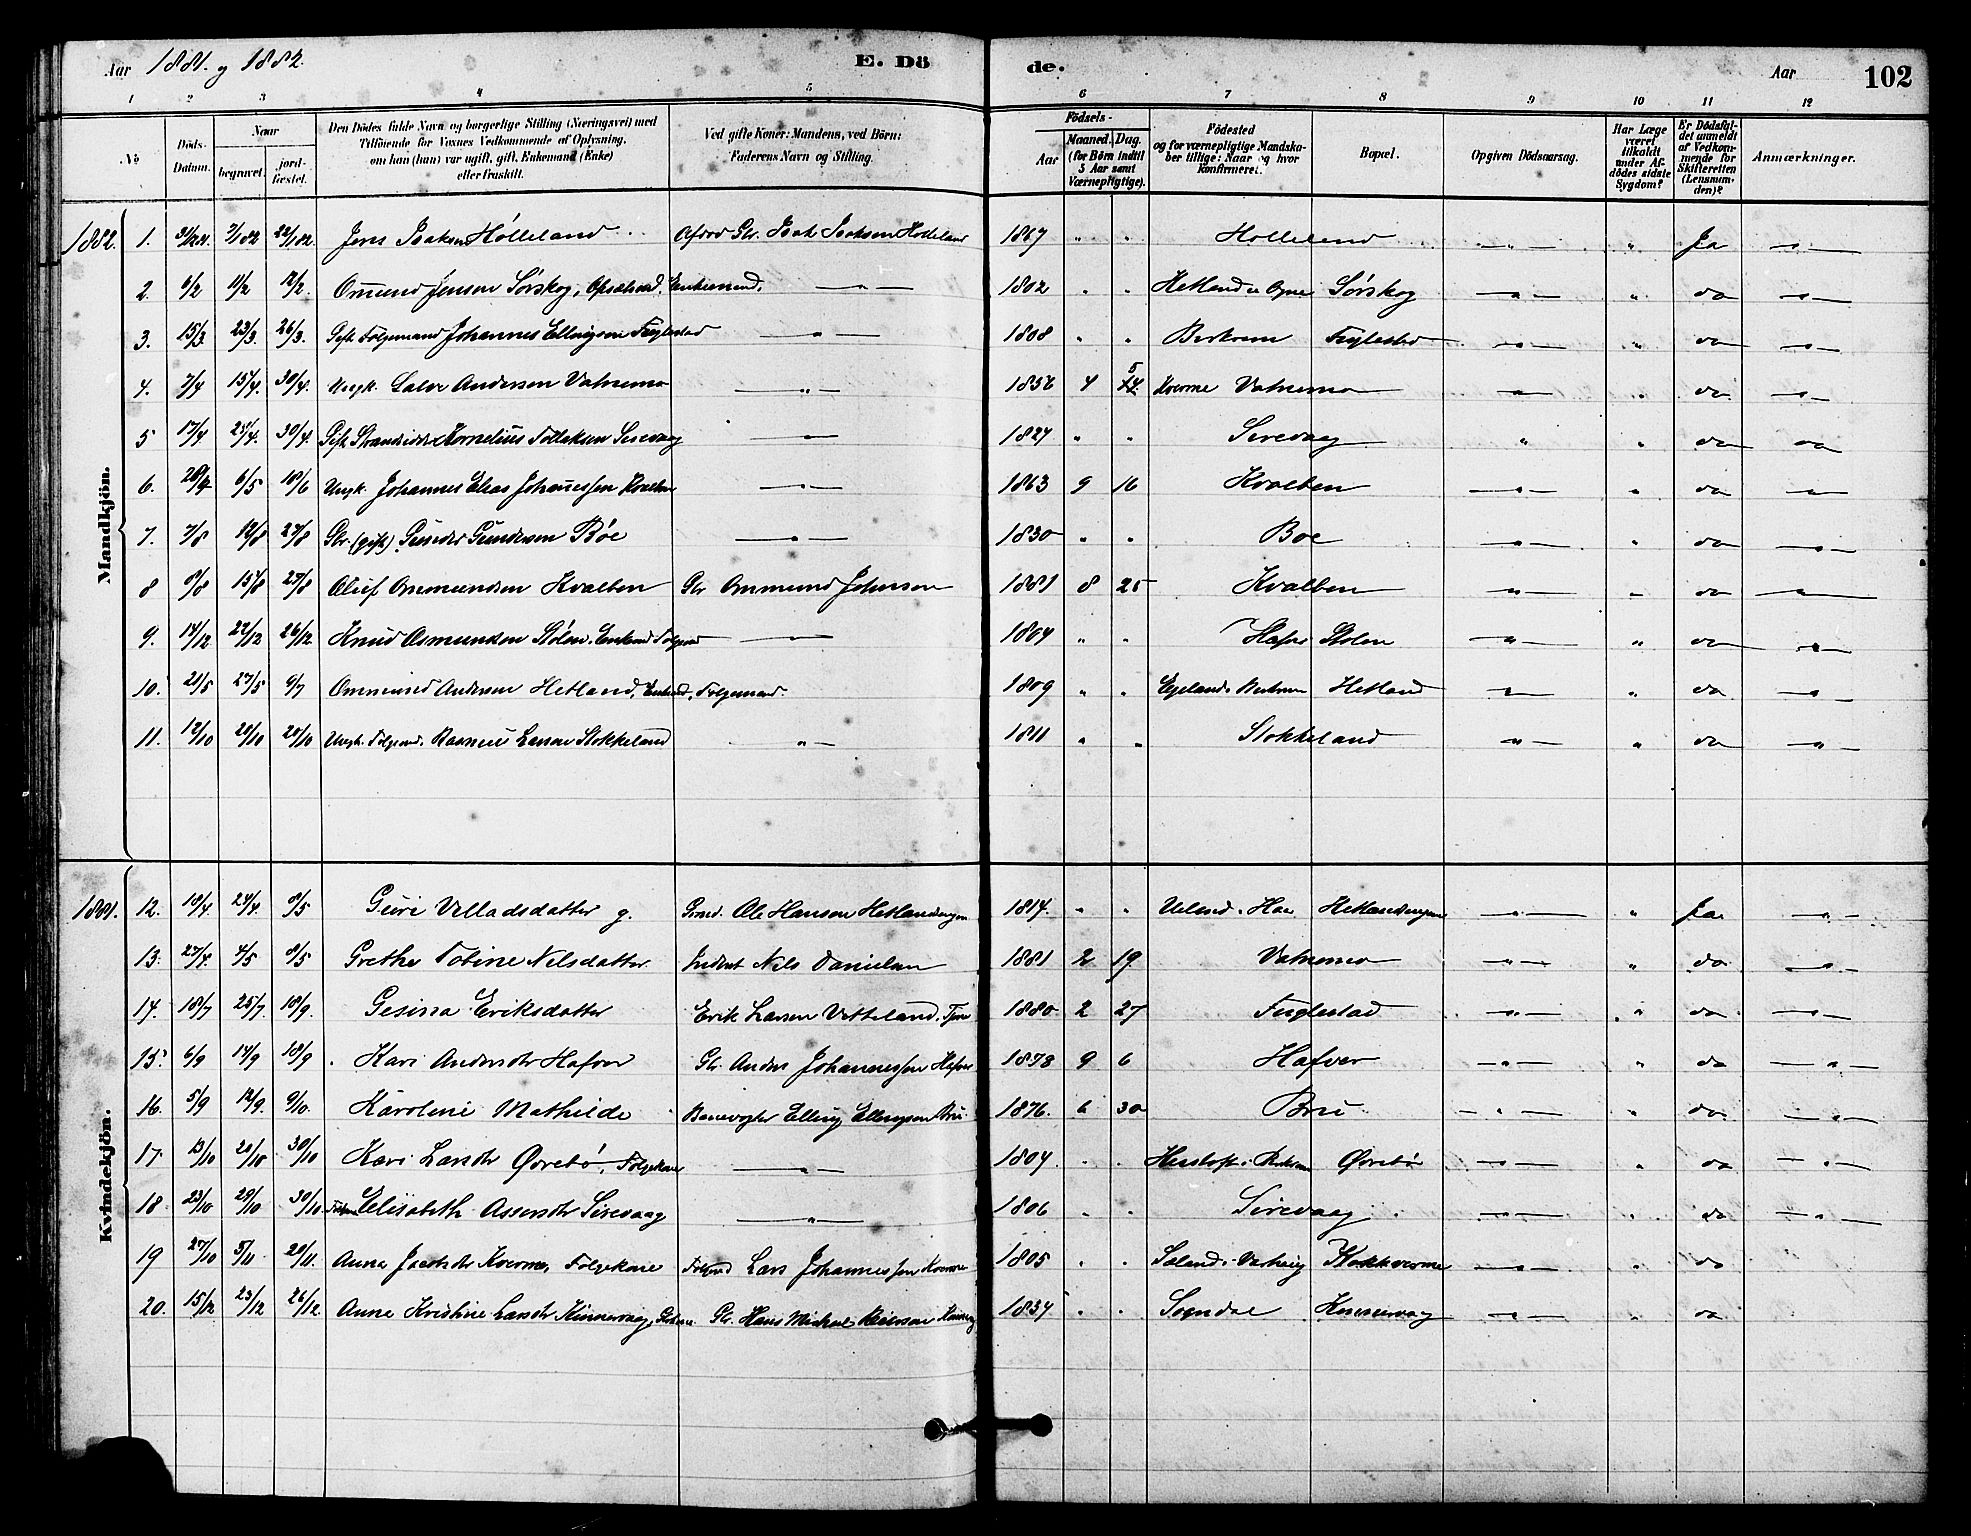 Aar 1881. og 1882. E. Dö de. Aar 102
1 2 3 4 5 6 7 8 9 10 11 12
No
Döds-Datum.
Naar
begravet.
jord-fæstet.
Den Dödes fulde Navn og borgerlige Stilling (Næringsvei) med
Tilföiende for Voxnes Vedkommende af Oplysning,
om han (hun) var ugift, gift, Enkemand (Enke)
eller fraskilt.
Ved gifte Koner: Mandens, ved Börn:
Faderens Navn og Stilling.
Födsels-
Aar
Maaned. Dag.
(for Börn indtil
5 Aar samt
Værnepligtige).
Födested
og for værnepligtige Mandska-
ber tillige: Naar og hvor
konfirmeret.
Bopæl.
Opgiven Dödsaarsag.
Har Læge
været
tilkaldt
under Af-
dödes sidste
Sygdom?
Er Dödsfal-
det anmeldt
af Vedkom-
mende for
Skifteretten
(Lensman-
den)?
Anmærkninger.
Mandkjön.
1882. 1. 31/12 81. 7/1 82 22/1 82. Jens Isaksen Hölleland Gbr. Isak Isaksen 1867 " " Hölleland " " Ja "
2. 6/2 11/2 12/2. Ommund Jensen Sörskog, Enkemand. " 1802 " " Hetland i Ogne Sörskog " " do "
3. 15/3 23/3. 26/3. Gift Folgemand Johannes Ellingsen Fuglestad " 1808 " " Birkrem Fuglestad " " do "
4. 7/4 15/4. 30/4. Ungk. Salve Andersen Vatnemo " 1856 4 5 Kverme Vatnemo " " do "
5 17/4 25/4. 30/4. Gift Strandsidder Kornelius Tollaksen Sirevaag " 1827 " " Sirevaag " " do do
6. 28/4 6/5 18/6 Ungk. Johannes Elias Johannessen Kvalben " 1863 9 16 Kvalben " " do "
7. 7/8 12/8 27/8 Gbr. (gift) Gunder Gundersen Böe " 1830 " " Boe " " do "
8 9/8 15/8 27/8 Oluf Ommundsen Kvalben Gbr Ommund Johnsen 1881 8 25 Kvalben " " do "
9. 14/12 22/12 26/12 Knud Osmundsen Stölen, Enkemd Folgemd " 1804 " " Stolen " " do "
10. 21/5 27/5 9/7 Ommund Andersen Hetland, Enkemd, Folgemand " 1809 " " Egeland i Birkrem Hetland " " do "
11. 12/10 20/10 29/10 Ungk. Folgemd. Rasmus Larsen Stokkeland " 1811 " " Stokkeland " " do "
Kvindekjön.
1881. 12. 19/4. 24/4. 8/5 Guri Villadsdatter g. Ole Hansen 1814. " " Ueland i Haa " " Ja "
13. 27/4. 4/5 8/5 Grethe Tobine Nilsdatter Inderst Nils Danielsen 1881 2 19 Vatnemo " " do "
14. 18/7 25/7 18/9. Gesina Eriksdatter Erik Larsen Vetteland, Tjener 1880 2 27 Fuglestad " " do "
15. 6/9 14/9 18/9 Kari Andersdtr Hafver Gbr. Anders Johannessen Hafver 1878 9 6 Hafver " " do "
16. 5/9 12/9. 9/10. Karoline Mathilde Banevogter Elling Ellingsen Bru 1876. 6 30 Bru " " do "
17. 13/10 20/10 30/10 Kari Larsdtr Örebö, Folgekone " 1804 " " i Birkrem Örebö " " do "
18 23/10 29/10 30/10 Elisabeth Assersdtr Sirevaag " 1806 " " Sirevaag " " do "
19 27/10 5/11 20/11. Anna Jacobsdr Kverme, Folgekone Folgmd Lars Johannessen Kverme 1805 " " " " do
20. 15/12 23/12 26/12. Anne Kristine Larsdtr Kinnervaag, Gbkone Gbr. Hans Michael Reiersen 1834 " " Sogndal Kinnervaag " " do